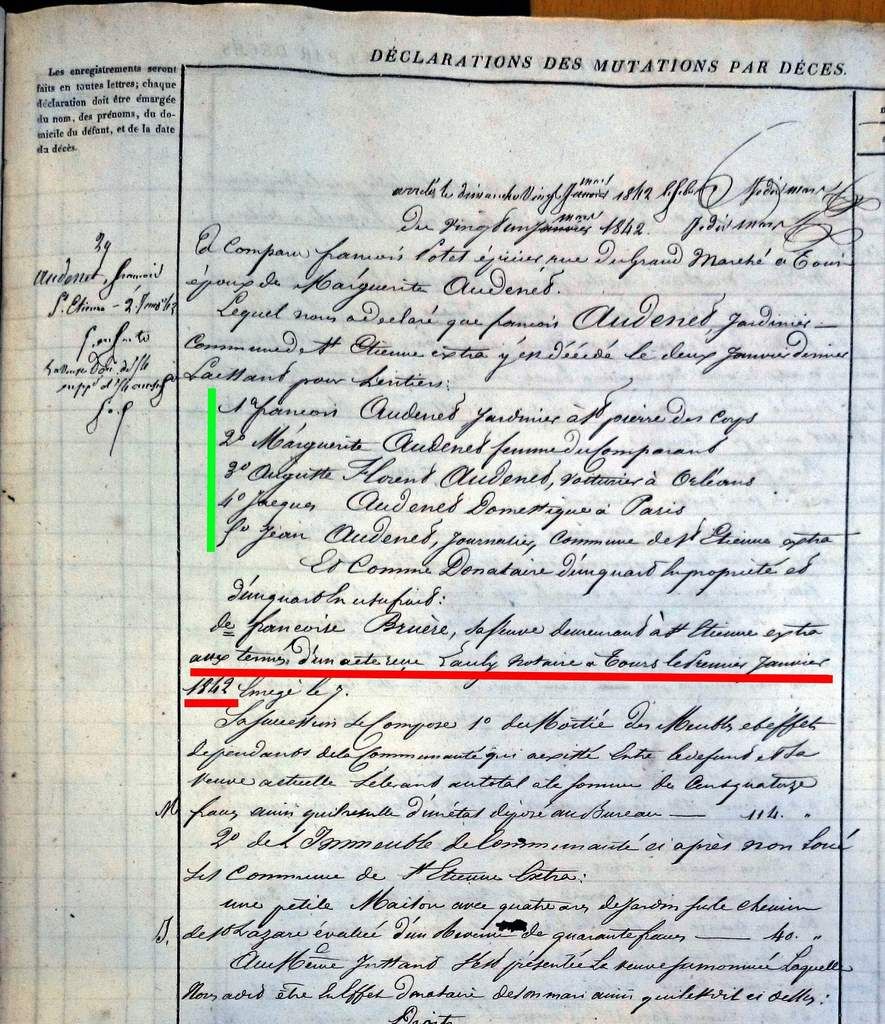 DÉCLARATIONS DES MUTATIONS PAR DÉCÈS.
Les enregistrements seront
faits en toutes lettres; chaque
déclaration doit être émargée
du nom, des prénoms, du do-
micile du défunt, et de la date
du décès.
arrêté le dimanche vingt janvier mars 1842
du vingt un janvier mars 1842.
29
Audenet, francois
St Etienne - 2
Et Comparu francois Potet épicier rue du Grand Marché a Tours
époux de Marguerite Audenet.
Lequel nous a déclaré que francois Audenet, Jardinier
Commune de St Etienne extra y est décédé le deux Janvier dernier
Laissant pour heritiers:
1° francois Audenet Jardinier à St pierre des Corps
2° Marguerite Audenet femme du Comparant
3° Auguste Florent Audenet, voiturier à Orléans
4° Jacques Audenet Domestique à Paris
5° Jean Audenet, Journalier, Commune de St Etienne extra
Et Comme Donataire d'un quart en propriété et
d'un quart en usufruit:
de francoise Bruère, sa veuve demeurant à St Etienne extra
aux termes d'un acte reçu notaire a Tours le Premier Janvier
1842 Enregé le 7.
Sa succession se Compose 1° du Moitié des Meubles et effets
dependants de la Communauté qui a existé Entre le defunt et sa
veuve actuelle S'élevant au total a la somme de Cent quatorze
M francs ainsi qu'il resulte d'un état déposé au Bureau — 114. "
2° de l'Immeuble de Communauté ci après non Loué
Sis Commune de St Etienne Extra:
une petite Maison avec quatre ares de Jardin sur le chemin
de St Lazare évalué d'un Revenu de quarante francs — 40. "
Au Même Instant S'est présentée La veuve surnommée Laquelle
Nous a dit être En Effet donataire de son mari ainsi qu'il est dit ci dessus:
Droits